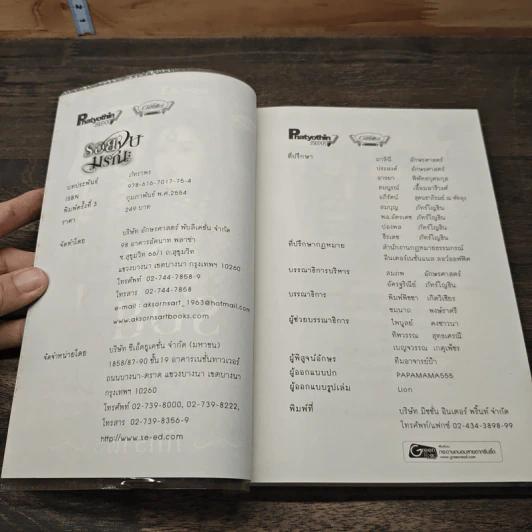 Phatyothin
รอยจูบ
มรณะ
บทประพันธ์ ภัทราพร
ISBN 978-616-7017-75-4
พิมพ์ครั้งที่ 3 กุมภาพันธ์ พ.ศ.2554
ราคา 249 บาท
จัดทำโดย บริษัท อักษรศาสตร์ พับลิเคชั่น จำกัด
98 อาคารอัคนาท พลาซ่า
ซ.สุขุมวิท 66/1 ถ.สุขุมวิท
แขวงบางนา เขตบางนา กรุงเทพฯ 10260
โทรศัพท์ 02-744-7858-9
โทรสาร 02-744-7858
e-mail : aksornsart_1963@hotmail.com
www.aksornsartbooks.com
จัดจำหน่ายโดย บริษัท ซีเอ็ดยูเคชั่น จำกัด (มหาชน)
1858/87-90 ชั้น19 อาคารเนชั่นทาวเวอร์
ถนนบางนา-ตราด แขวงบางนา เขตบางนา
กรุงเทพฯ 10260
โทรศัพท์ 02-739-8000, 02-739-8222,
โทรสาร 02-739-8356-9
http://www.se-ed.com
Phatyothin
ที่ปรึกษา มาลินี อักษรศาสตร์
ประสงค์ อักษรศาสตร์
อารยา
สมบูรณ์
อภิรัตน์
สมบุญ ภัทร์ไญจิน
พล.อัครเทพ ภัทร์ไญจิน
ปองพล ภัทร์ไญจิน
ธีรเดช ภัทร์ไญจิน
ที่ปรึกษากฎหมาย สำนักงานกฎหมายธรรมกรณ์
อินเตอร์เนชั่นแนล ลอว์ออฟฟิศ
บรรณาธิการบริหาร สมภพ อักษรศาสตร์
อัครฐิริณีย์ ภัทร์ไญจิน
บรรณาธิการ พิมพ์พิชชา เกิดวิเชียร
ชมนาถ พงษ์ราศรี
ผู้ช่วยบรรณาธิการ ไพบูลย์ คงชาวนา
ทิพวรรณ สุทธเดรณี
เบญจวรรณ เกตุเพ็ชร
ผู้พิสูจน์อักษร ทีมอาจารย์ป้า
ผู้ออกแบบปก PAPAMAMA555
ผู้ออกแบบรูปเล่ม Lion
พิมพ์ที่ บริษัท มิชชั่น อินเตอร์ พริ้นท์ จำกัด
โทรศัพท์/แฟกซ์ 02-434-3898-99
Green
กระดาษถนอมสายตากรีนรี้ด
www.greenread.com